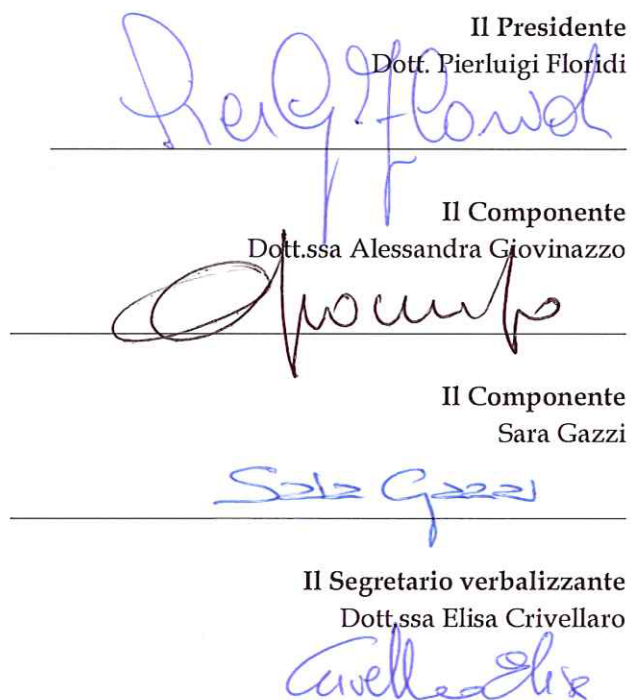 Il Presidente
Dott. Pierluigi Floridi
Il Componente
Dott.ssa Alessandra Giovinazzo
Il Componente
Sara Gazzi
Sara Gazzi
Il Segretario verbalizzante
Dott.ssa Elisa Crivellaro